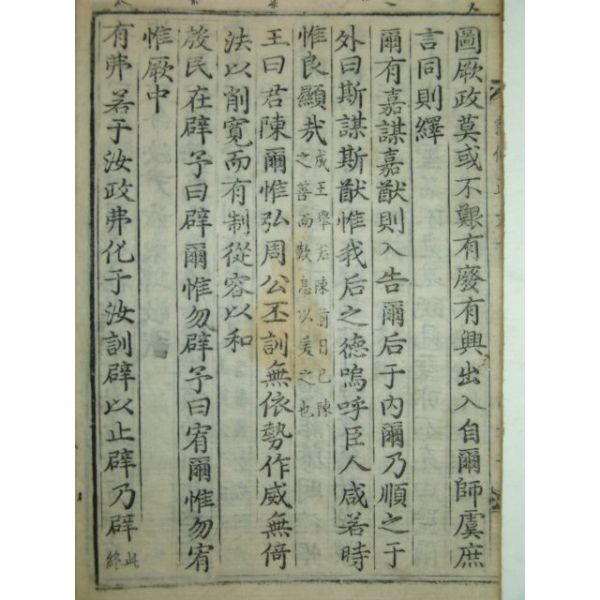 圖厥政莫或不艱有廢有興出入自爾師虞庶
言同則繹
爾有嘉謀嘉猷則入告爾后于內爾乃順之于
外曰斯謀斯猷惟我后之德嗚呼臣人咸若時
惟良顯哉
成王舉君陳前日已陳
之善而歎息以美之也
王曰君陳爾惟弘周公丕訓無依勢作威無倚
法以削寬而有制從容以和
殷民在辟予曰辟爾惟勿辟予曰宥爾惟勿宥
惟厥中
有弗若于汝政弗化于汝訓辟以止辟乃辟
此
終